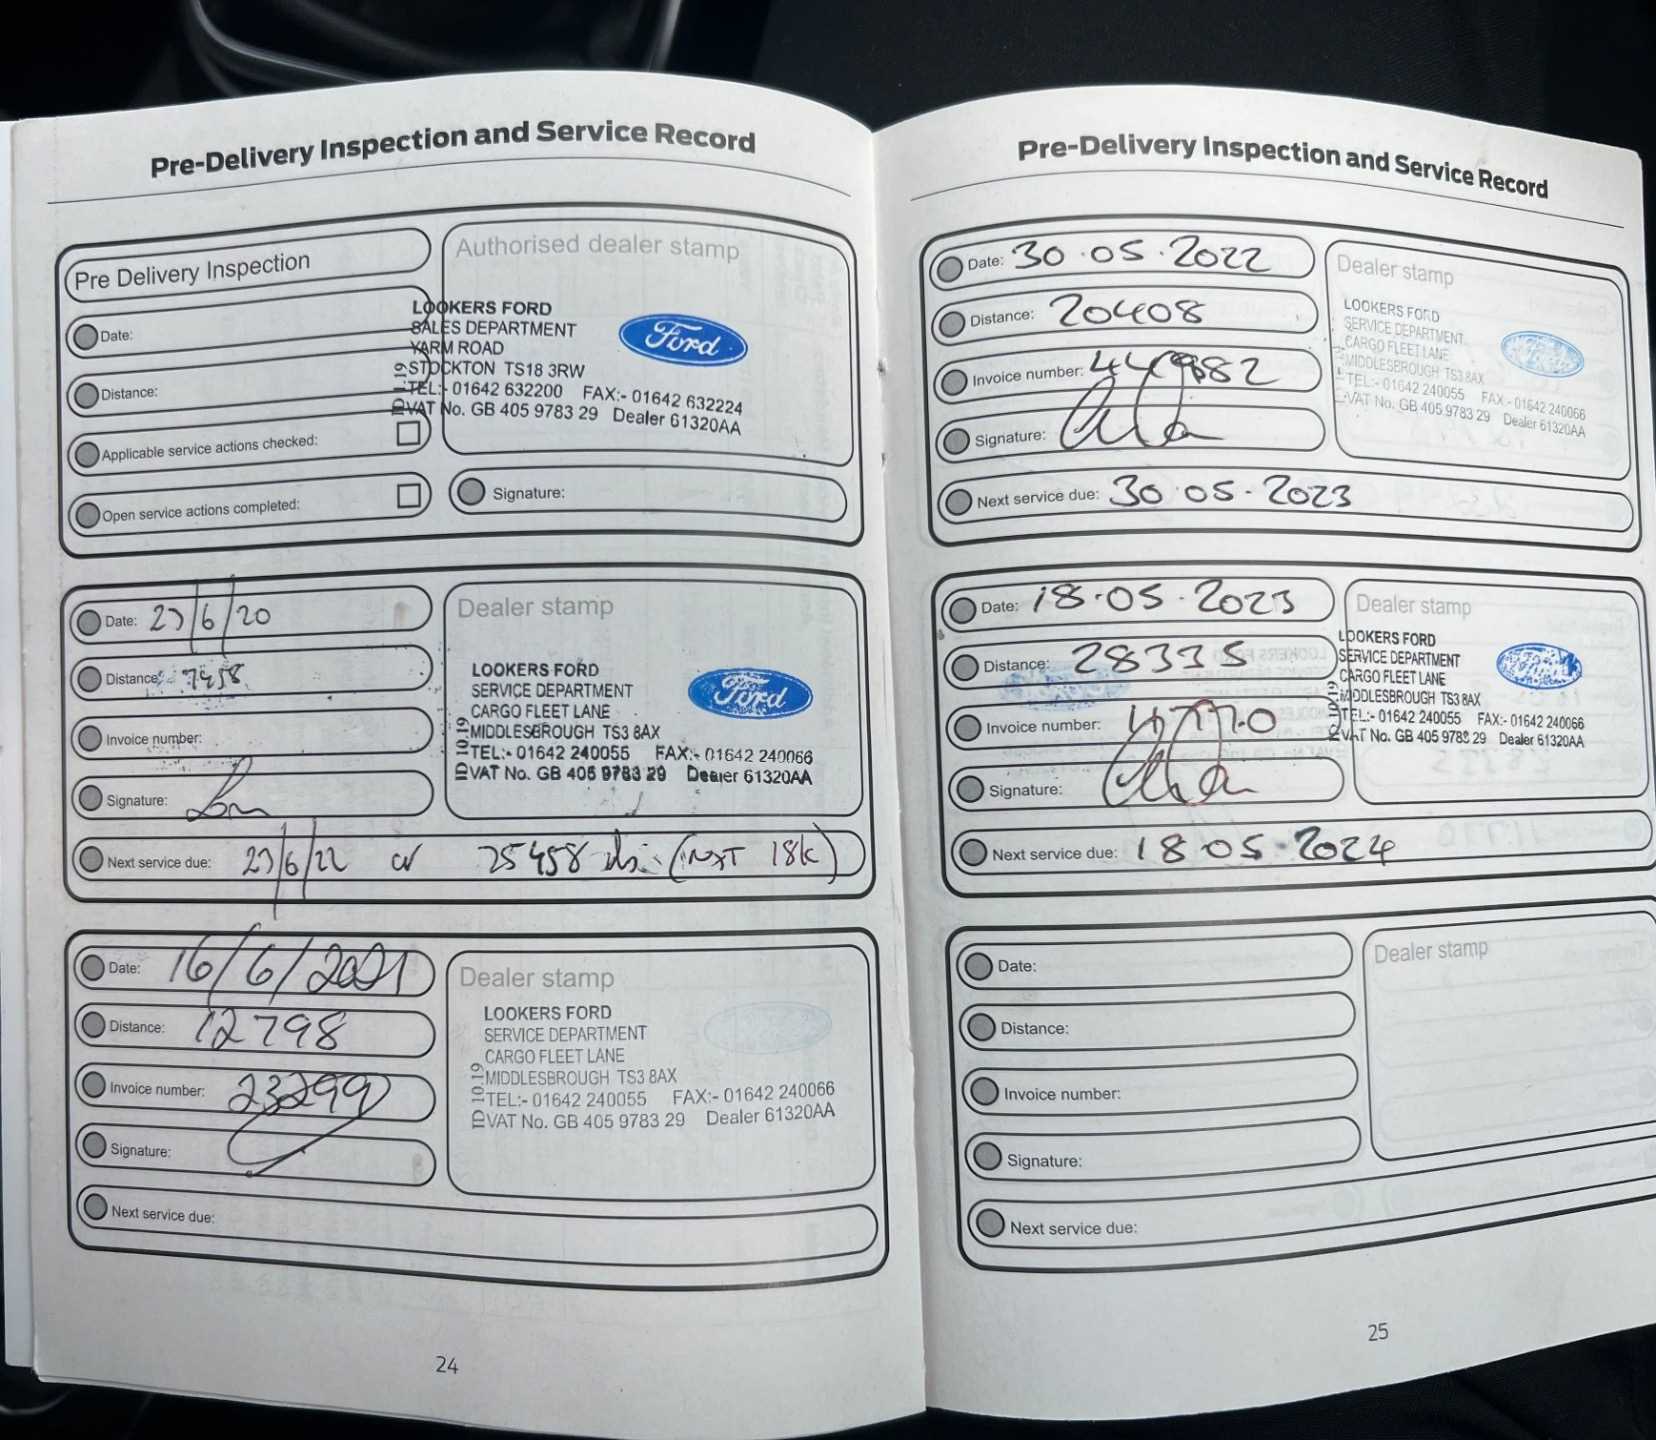 Pre-Delivery Inspection and Service Record
Pre Delivery Inspection
Date:
Distance:
Applicable service actions checked:
Open service actions completed:
Authorised dealer stamp
LOOKERS FORD
SALES DEPARTMENT
YARM ROAD
STOCKTON TS18 3RW
TEL:- 01642 632200 FAX:- 01642 632224
VAT No. GB 405 9783 29 Dealer 61320AA
ID 1019
Ford
Signature:
Date: 23/6/20
Distance: 7458
Invoice number:
Signature:
Next service due: 23/6/22 or 25458 (NXT 18K)
Dealer stamp
LOOKERS FORD
SERVICE DEPARTMENT
CARGO FLEET LANE
MIDDLESBROUGH TS3 8AX
TEL:- 01642 240055 FAX:- 01642 240066
VAT No. GB 405 9783 29 Dealer 61320AA
ID 1019
Ford
Date: 16/6/2021
Distance: 12798
Invoice number: 23299
Signature:
Next service due:
Dealer stamp
LOOKERS FORD
SERVICE DEPARTMENT
CARGO FLEET LANE
MIDDLESBROUGH TS3 8AX
TEL:- 01642 240055 FAX:- 01642 240066
VAT No. GB 405 9783 29 Dealer 61320AA
ID 1019
24
Pre-Delivery Inspection and Service Record
Date: 30.05.2022
Distance: 20408
Invoice number:
Signature:
Next service due: 30.05.2023
Dealer stamp
LOOKERS FORD
SERVICE DEPARTMENT
CARGO FLEET LANE
MIDDLESBROUGH TS3 8AX
TEL:- 01642 240055 FAX:- 01642 240066
VAT No. GB 405 9783 29 Dealer 61320AA
Ford
Date: 18.05.2023
Distance: 28335
Invoice number:
Signature:
Next service due: 18.05.2024
Dealer stamp
LOOKERS FORD
SERVICE DEPARTMENT
CARGO FLEET LANE
MIDDLESBROUGH TS3 8AX
TEL:- 01642 240055 FAX:- 01642 240066
VAT No. GB 405 9783 29 Dealer 61320AA
Ford
Date:
Distance:
Invoice number:
Signature:
Next service due:
Dealer stamp
25